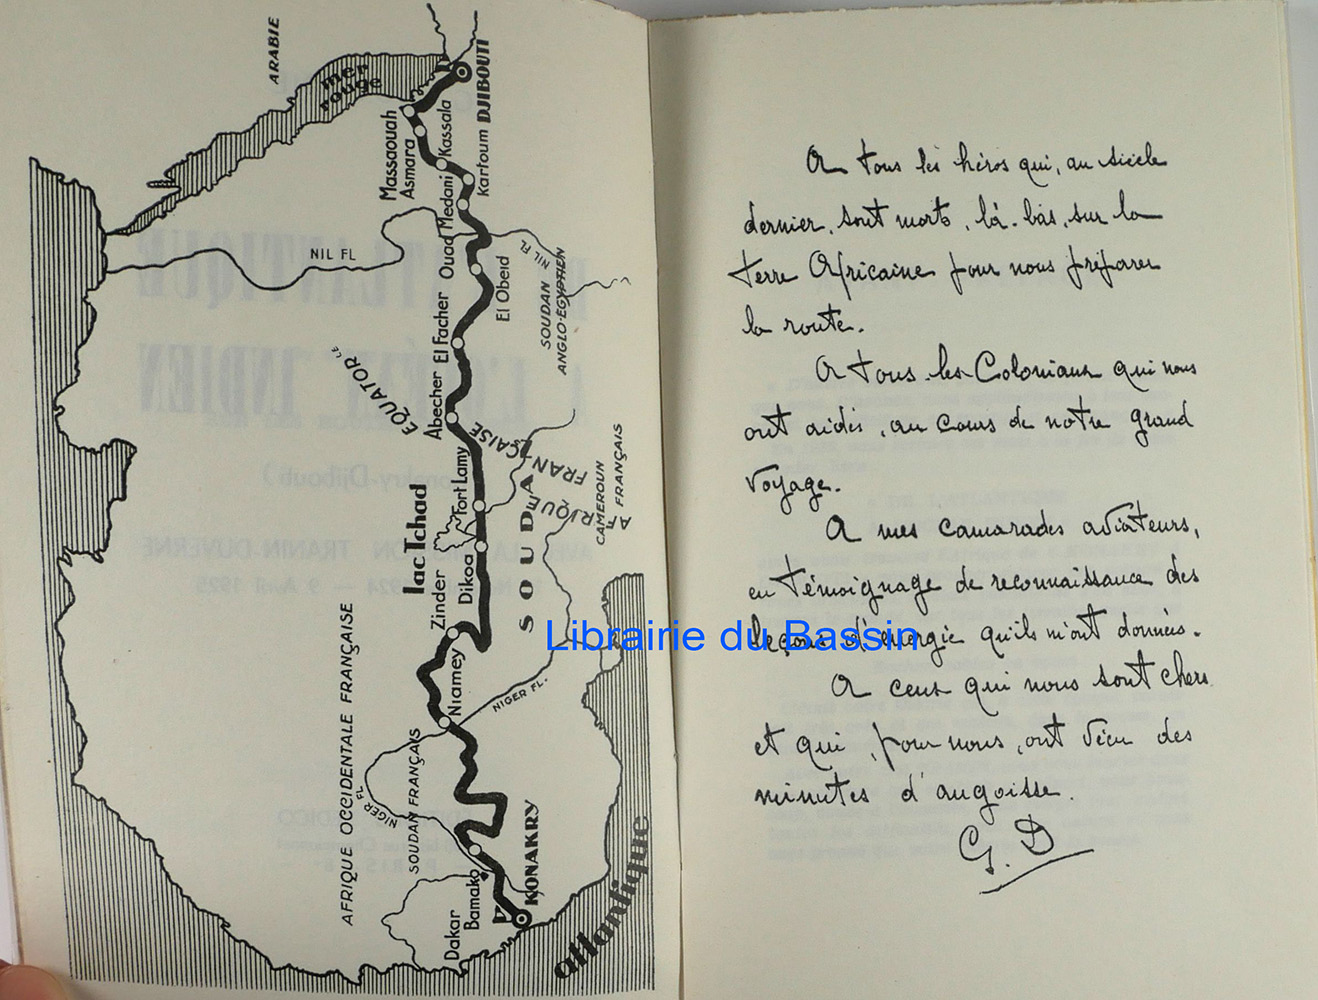 ARABIE
mer
rouge
DJIBOUTI
Massaouah
Asmara
Kassala
Kartoum
Ouad Medani
NIL FL
NIL FL
El Obeid
SOUDAN
ANGLO-EGYPTIEN
El Facher
Abecher
EQUATORLE
AFRIQUE
FRANÇAISE
Fort Lamy
lac Tchad
CAMEROUN
FRANÇAIS
SOUDA
Dikoa
Zinder
Niamey
NIGER FL.
AFRIQUE OCCIDENTALE FRANÇAISE
NIGER FL
SOUDAN FRANÇAIS
Bamako
Dakar
KONAKRY
atlantique
A tous les héros qui, au siècle
dernier, sont morts, là-bas, sur la
terre Africaine pour nous préparer
la route.
A tous les Coloniaux qui nous
ont aidés, au cours de notre grand
voyage.
A mes camarades aviateurs,
en témoignage de reconnaissance des
leçons d'énergie qu'ils m'ont données.
A ceux qui nous sont chers
et qui, pour nous, ont vécu des
minutes d'angoisse.
G. D
Librairie du Bassin